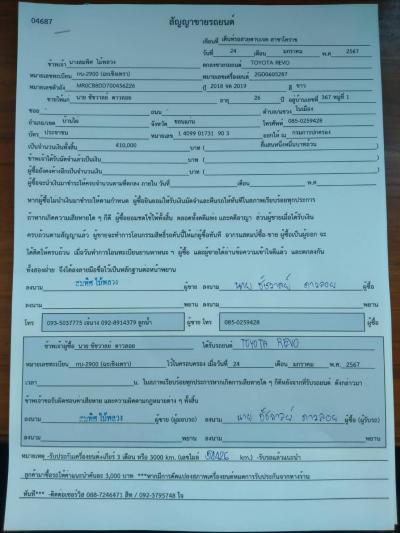 04687
สัญญาขายรถยนต์
เขียนที่ เต็นท์รถสวยตามเจต สาขาโคราช
วันที่ 24 เดือน มกราคม พ.ศ. 2567
ข้าพเจ้า นางสมพิศ ไม้พลวง ตกลงขายรถยนต์ TOYOTA REVO
หมายเลขทะเบียน กบ-2900 (ฉะเชิงเทรา) หมายเลขเครื่องยนต์ 2GD0605287
หมายเลขตัวถัง MR0CB8DD700456226 ปี 2018 จด 2019 สี ขาว
ขายให้แก่ นาย ชัชวาลย์ ดาวลอย อายุ 26 ปี อยู่บ้านเลขที่ 367 หมู่ที่ 1
ซอย - ถนน - ตำบล/แขวง ในเมือง
อำเภอ/เขต บ้านไผ่ จังหวัด ขอนแก่น โทรศัพท์ 085-0259428
บัตร ประชาชน หมายเลข 1 4099 01731 90 3 ออกให้ ณ กรมการปกครอง
เป็นจำนวนเงินทั้งสิ้น 410,000 บาท ( สี่แสนหนึ่งหมื่นบาทถ้วน )
ข้าพเจ้าได้รับมัดจำแล้วเป็นเงิน บาท ( )
ผู้ซื้อยังคงค้างอีกเป็นจำนวนเงิน บาท ( )
ผู้ซื้อจะนำเงินมาชำระให้ครบจำนวนตามที่ตกลง ภายใน วันที่ เดือน พ.ศ.
หากผู้ซื้อไม่นำเงินมาชำระให้ตามกำหนด ผู้ซื้อยินยอมให้ริบเงินมัดจำและคืนรถให้ทันทีในสภาพเรียบร้อยทุกประการ
ถ้าหากเกิดความเสียหายใด ๆ ก็ดี ผู้ซื้อยอมชดใช้ให้ทั้งสิ้น ตลอดทั้งคดีแพ่ง และคดีอาญา ส่วนผู้ขายเมื่อได้รับเงิน
ครบถ้วนตามสัญญาแล้ว ผู้ขายจะทำการโอนกรรมสิทธิ์รถคันนี้ให้แก่ผู้ซื้อทันที
ทั้งสองฝ่าย จึงได้ลงลายมือชื่อไว้เป็นหลักฐานต่อหน้าพยาน
ลงนาม สมพิศ ไม้พลวง ผู้ขาย ลงนาม นาย ชัชวาลย์ ดาวลอย ผู้ซื้อ
ลงนาม พยาน ลงนาม พยาน
โทร 093-5037775 092-8914379 ผู้ขาย โทร 085-0259428 ผู้ซื้อ
ข้าพเจ้าผู้ซื้อ นาย ชัชวาลย์ ดาวลอย ได้รับรถยนต์ TOYOTA REVO
หมายเลขทะเบียน กบ-2900 (ฉะเชิงเทรา) ไว้ในครอบครอง เมื่อวันที่ 24 เดือน มกราคม พ.ศ. 2567
เวลา น. ในสภาพเรียบร้อยทุกประการหากเกิดการเสียหายใด ๆ ก็ดีหลังจากที่รับรถยนต์ ดังกล่าวมา
ข้าพเจ้าขอรับผิดชอบค่าเสียหาย และความผิดตามกฎหมายต่าง ๆ ทั้งสิ้น
ลงนาม สมพิศ ไม้พลวง ผู้ขาย (ผู้มอบรถ) ลงนาม นาย ชัชวาลย์ ดาวลอย ผู้ซื้อ (ผู้รับรถ)
ลงนาม พยาน ลงนาม พยาน
หมายเหตุ -รับประกันเครื่องยนต์+เกียร์ 3 เดือน หรือ 3000 km. (เลขไมล์ km.) -รับรถแล้ว
ลูกค้ามาซื้อรถให้ค่าแนะนำคันละ 3,000 บาท ***หากมีการดัดแปลงสภาพเครื่องยนต์หมดการรับประกันจากทางร้าน
ทันที*** -ติดต่อเซอร์วิส 088-7246471 / 092-3795748 ใจ